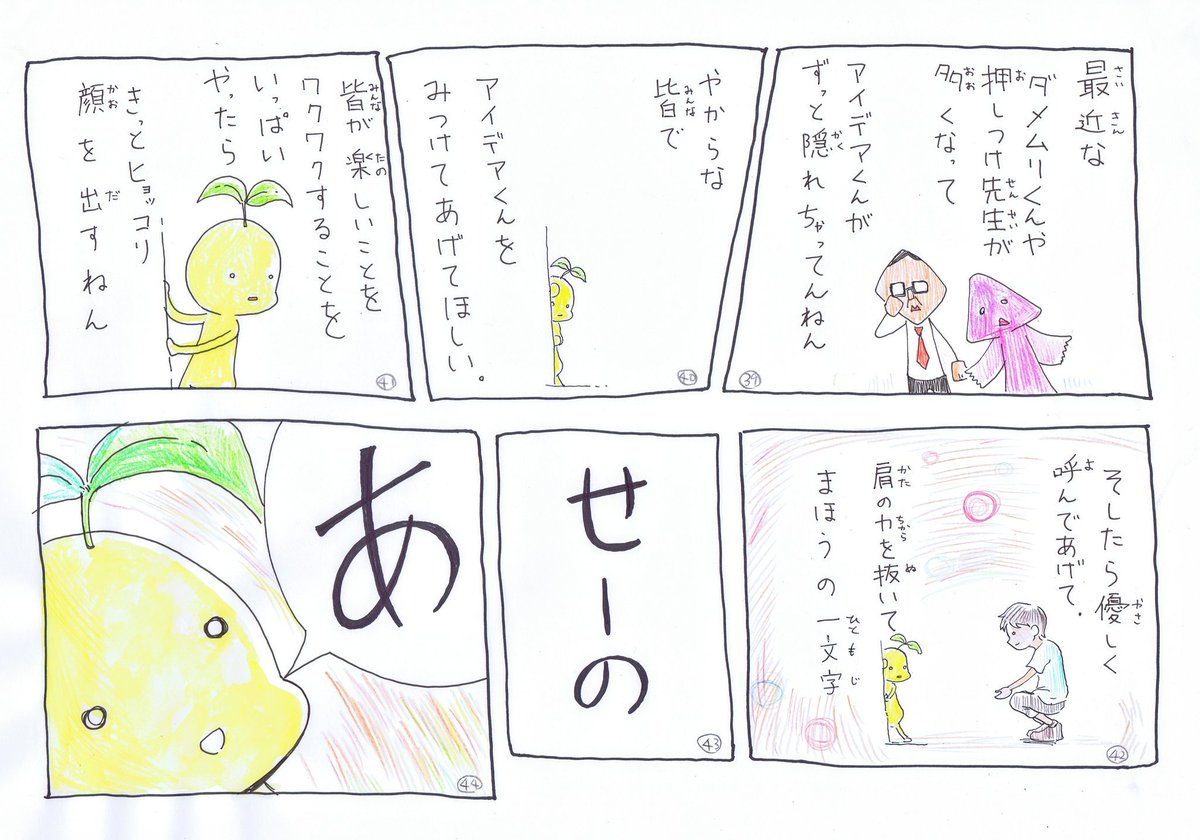 最近な
ダメムリくんや
押しつけ先生が
多くなって
アイデアくんが
ずっと隠れちゃってんねん
39
やからな
皆で
アイデアくんを
みつけてあげてほしい。
40
皆が楽しいことを
ワクワクすることを
いっぱい
やったら
きっとヒョッコリ
顔を出すねん
41
そしたら優しく
呼んであげて.
肩の力を抜いて
まほうの一文字
42
せーの
43
あ
44